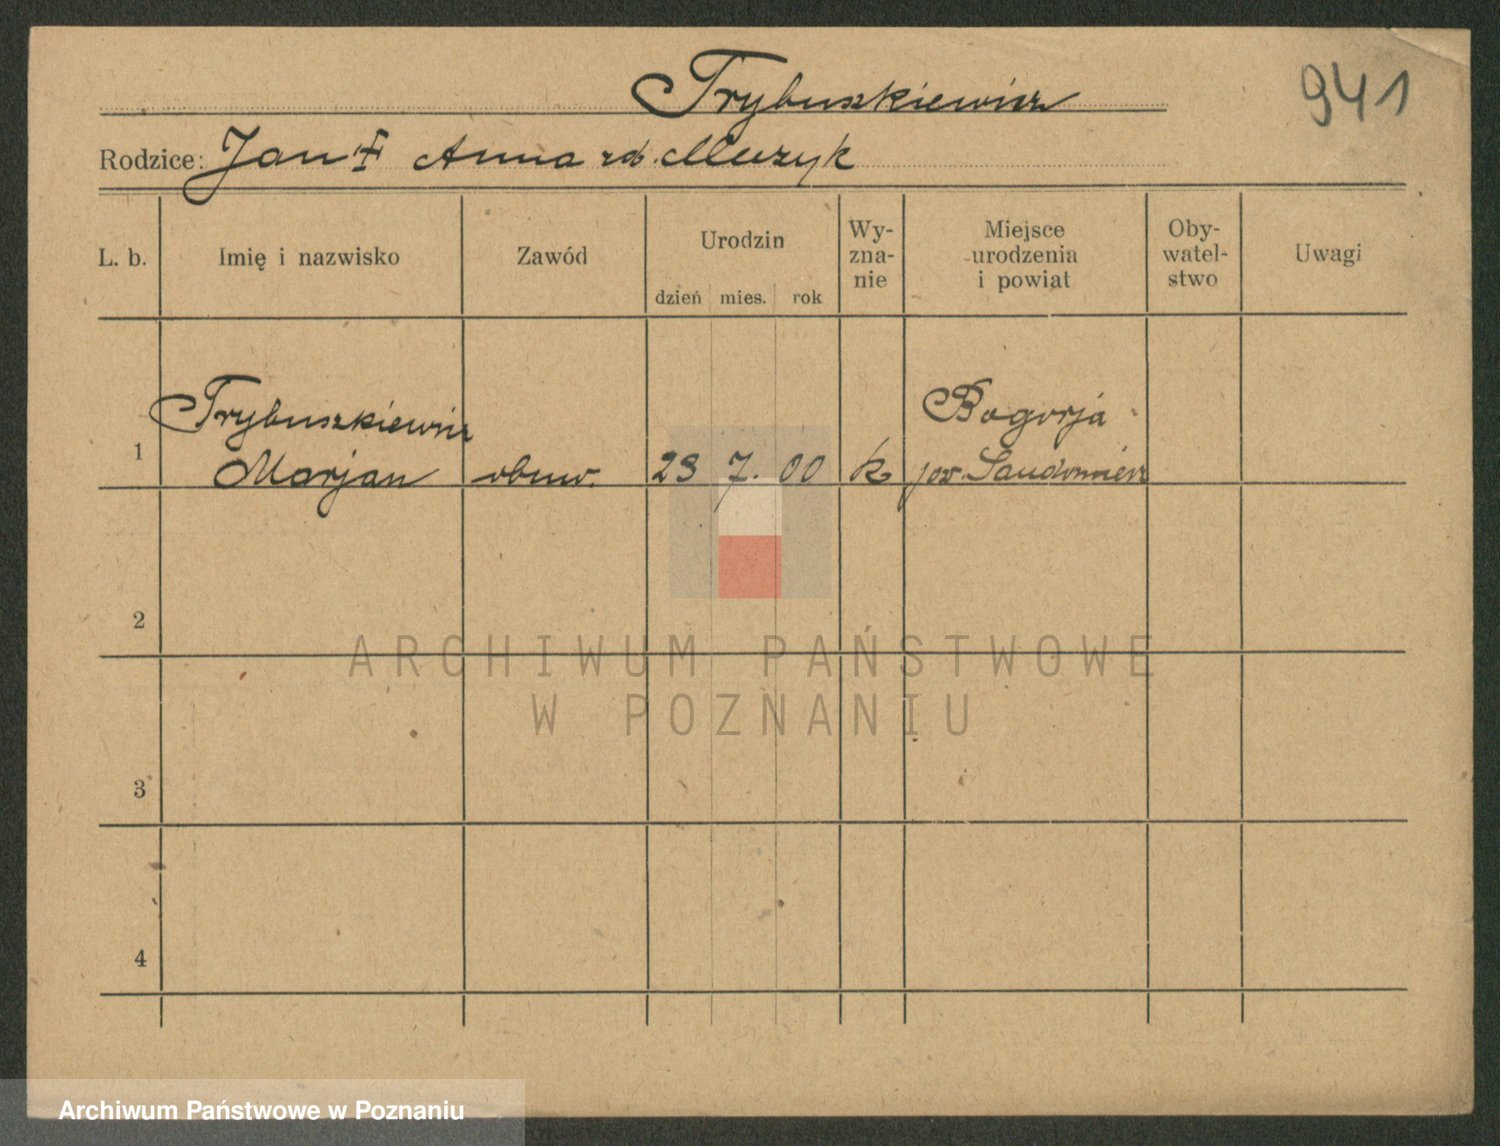 Trybuszkiewicz
941
Rodzice: Jan Anna rod. Muszyk
L. b.
Imię i nazwisko
Zawód
Urodzin
dzień mies. rok
Wy-
zna-
nie
Miejsce
urodzenia
i powiat
Oby-
watel-
stwo
Uwagi
1
Trybuszkiewicz
Marjan
23 7. 00
k
Bogorja
pow. Sandomierz
2
ARCHIWUM PAŃSTWOWE
W POZNANIU
3
4
Archiwum Państwowe w Poznaniu